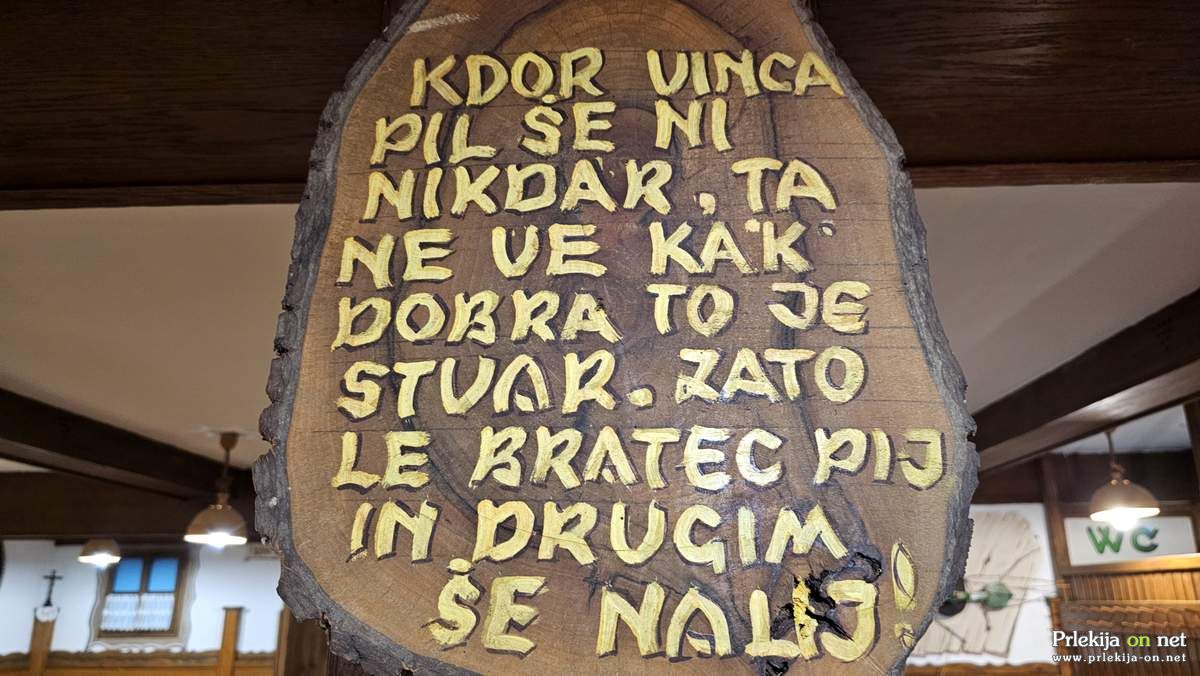 KDOR VINCA
PIL ŠE NI
NIKDAR, TA
NE VE KAK
DOBRA TO JE
STVAR. ZATO
LE BRATEC PIJ
IN DRUGIM
ŠE NALIJ!
WC
Prlekija on net
www.prlekija-on.net